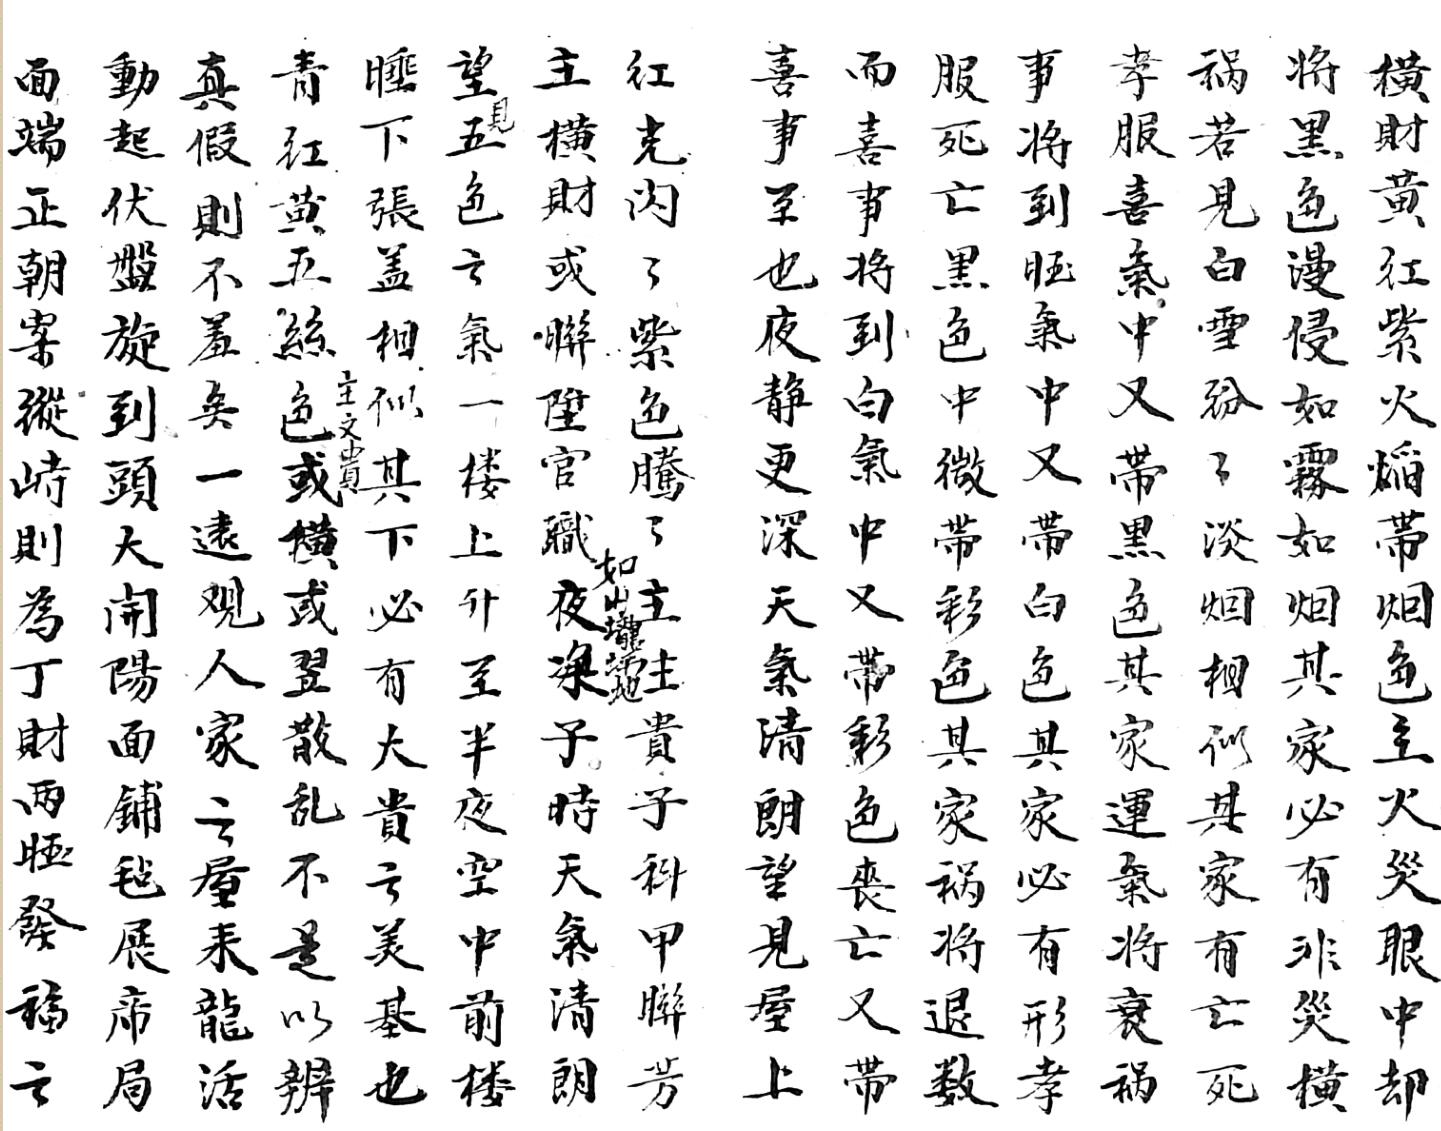 橫財黃紅紫火焰帶烟色主火災眼中却
将黑色漫侵如霧如烟其家必有非災橫
祸若見白雪紛々淡烟相似其家有亡死
孝服喜氣中又帶黑色其家運氣将衰祸
事将到旺氣中又帶白色其家必有形孝
服死亡黑色中微帶彩色其家祸将退数
而喜事将到白氣中又帶彩色喪亡又帶
喜事至也夜静更深天氣清朗望見屋上
紅光闪々紫色騰々主主貴子科甲聯芳
如山壠坟地
主橫財或聯陞官職夜深子時天氣清朗
望五色云氣一楼上升至半夜空中前楼
見
睡下張盖相似其下必有大貴云美基也
主文貴
青紅黄五絲色或橫或竖散乱不是以辨
真假則不羞矣一遠观人家云屋来龍活
動起伏盤旋到頭大開陽面鋪毡展席局
面端正朝案縱峙則為丁財两旺發福云